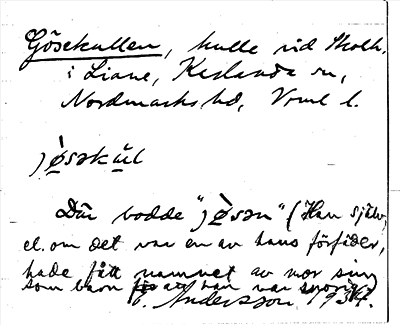 Gösekullen, kulle vid Skolh.
i Liane, Karlanda sn,
Nordmarks hd, Vrml l.
jø̀səkul
Där bodde "jø̀sən" (Han själv,
el. om det var en av hans förfäder,
hade fått namnet av mor sin
som barn för att han var snorig)
E. Andersson 1934.